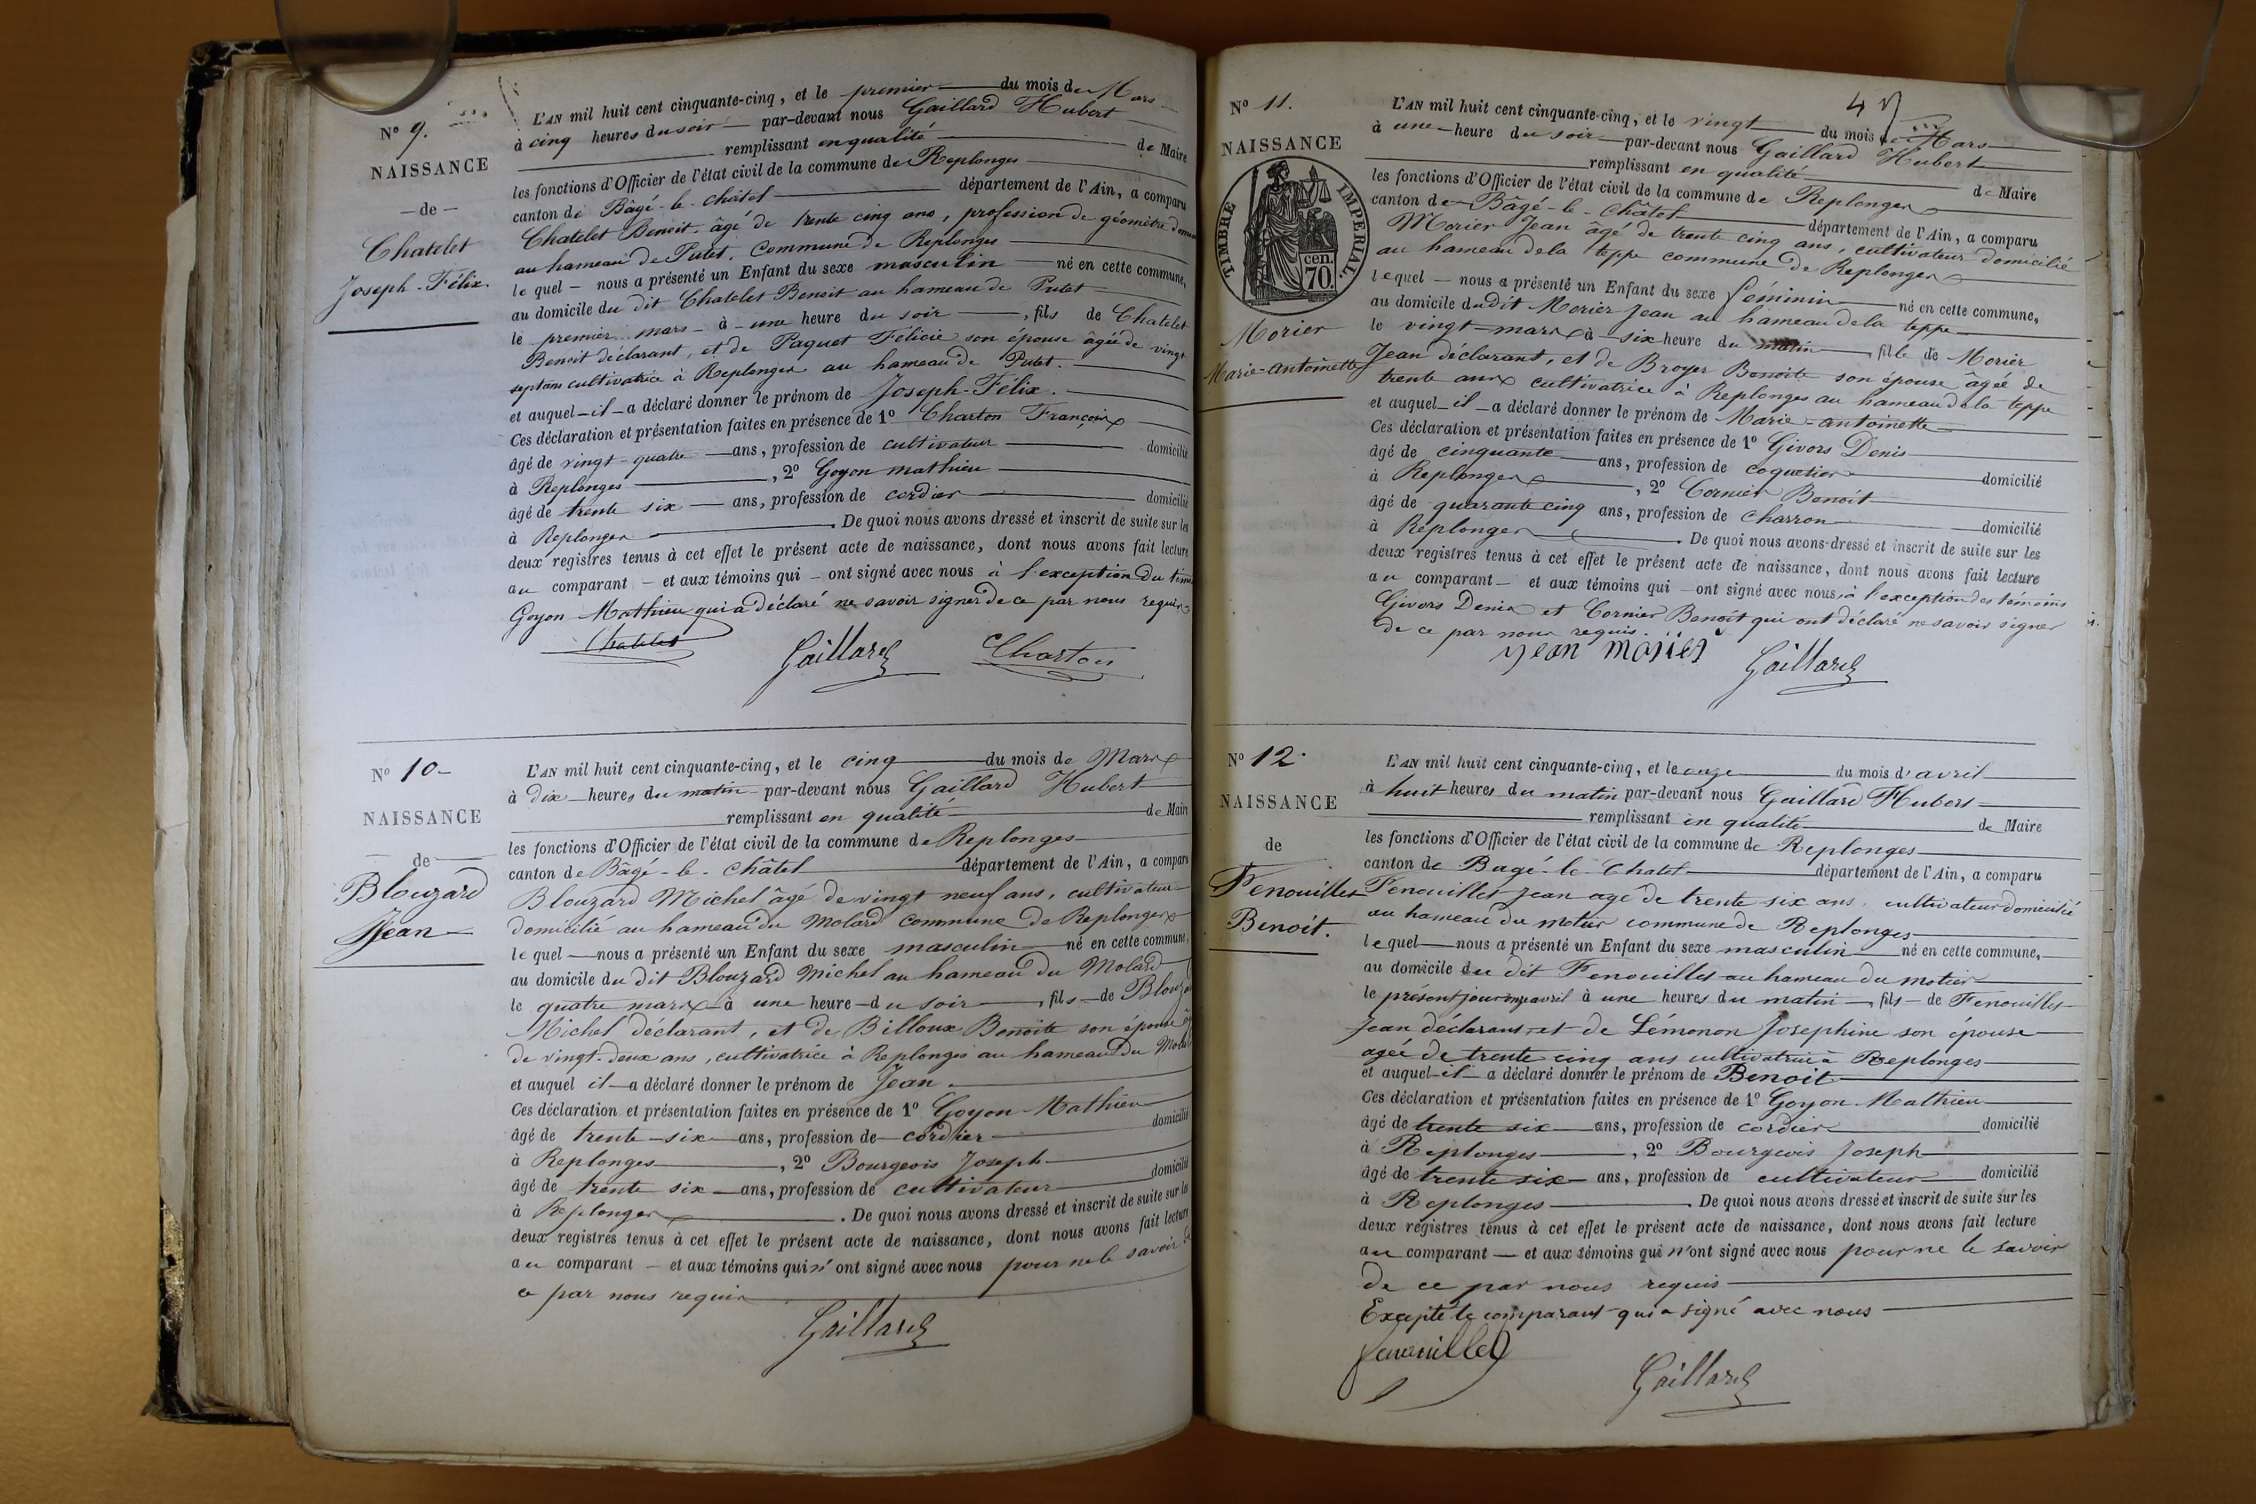 N° 9.
NAISSANCE
— de —
Chatelet
Joseph-Félix.
L'AN mil huit cent cinquante-cinq, et le premier du mois de Mars
à cinq heures du soir par-devant nous Gaillard Hubert
remplissant en qualité de Maire
les fonctions d'Officier de l'état civil de la commune de Replonges
canton de Bâgé-le-châtel département de l'Ain, a comparu
Chatelet Benoit âgé de trente cinq ans, profession de géomètre
au hameau de Putet, commune de Replonges
lequel nous a présenté un Enfant du sexe masculin né en cette commune,
au domicile du dit Chatelet Benoit au hameau de Putet
le premier mars à une heure du soir, fils de Chatelet
Benoit déclarant, et de Paquet Félicie son épouse âgée de vingt
sept ans cultivatrice à Replonges au hameau de Putet.
et auquel il a déclaré donner le prénom de Joseph-Félix.
Ces déclaration et présentation faites en présence de 1° Charton François
âgé de vingt-quatre ans, profession de cultivateur domicilié
à Replonges, 2° Goyon mathieu
âgé de trente six ans, profession de cordier domicilié
à Replonges. De quoi nous avons dressé et inscrit de suite sur les
deux registres tenus à cet effet le présent acte de naissance, dont nous avons fait lecture
au comparant et aux témoins qui ont signé avec nous à l'exception du
Goyon Mathieu qui a déclaré ne savoir signer de ce par nous requis
Chatelet Gaillard Charton
N° 10
NAISSANCE
de
Blouzard
Jean
L'AN mil huit cent cinquante-cinq, et le cinq du mois de Mars
à dix heures du matin par-devant nous Gaillard Hubert
remplissant en qualité de Maire
les fonctions d'Officier de l'état civil de la commune de Replonges
canton de Bâgé-le-châtel département de l'Ain, a comparu
Blouzard Michel âgé de vingt neuf ans, cultivateur
domicilié au hameau du Molard commune de Replonges
lequel nous a présenté un Enfant du sexe masculin né en cette commune,
au domicile du dit Blouzard Michel au hameau du Molard
le quatre mars à une heure du soir, fils de
Michel déclarant, et de Billoux Benoite son épouse
de vingt-deux ans, cultivatrice à Replonges au hameau du
et auquel il a déclaré donner le prénom de Jean.
Ces déclaration et présentation faites en présence de 1° Goyon Mathieu
âgé de trente-six ans, profession de cordier domicilié
à Replonges, 2° Bourgeois Joseph
âgé de trente six ans, profession de cultivateur domicilié
à Replonges. De quoi nous avons dressé et inscrit de suite sur les
deux registres tenus à cet effet le présent acte de naissance, dont nous avons fait lecture
au comparant et aux témoins qui n'ont signé avec nous pour ne le savoir
ce par nous requis
Gaillard
N° 11.
NAISSANCE
TIMBRE IMPERIAL.
cen.
70.
Morier
Marie-antoinette
L'AN mil huit cent cinquante-cinq, et le vingt du mois de Mars
à une heure du soir par-devant nous Gaillard Hubert
remplissant en qualité de Maire
les fonctions d'Officier de l'état civil de la commune de Replonges
canton de Bâgé-le-châtel département de l'Ain, a comparu
Morier Jean âgé de trente cinq ans, cultivateur domicilié
au hameau de la teppe commune de Replonges
lequel nous a présenté un Enfant du sexe féminin né en cette commune,
au domicile du dit Morier Jean au hameau de la teppe
le vingt mars à six heure du matin, fille de Morier
Jean déclarant, et de Broyer Benoite son épouse âgée de
trente ans cultivatrice à Replonges au hameau de la teppe
et auquel il a déclaré donner le prénom de Marie-antoinette
Ces déclaration et présentation faites en présence de 1° Givors Denis
âgé de cinquante ans, profession de coquetier domicilié
à Replonges, 2° Cornier Benoit
âgé de quarante cinq ans, profession de charron domicilié
à Replonges. De quoi nous avons dressé et inscrit de suite sur les
deux registres tenus à cet effet le présent acte de naissance, dont nous avons fait lecture
au comparant et aux témoins qui ont signé avec nous à l'exception des témoins
Givors Denis et Cornier Benoit qui ont déclaré ne savoir signer
de ce par nous requis.
jean morier Gaillard
N° 12.
NAISSANCE
de
Fenouillet
Benoit.
L'AN mil huit cent cinquante-cinq, et le onze du mois d'avril
à huit heures du matin par-devant nous Gaillard Hubert
remplissant en qualité de Maire
les fonctions d'Officier de l'état civil de la commune de Replonges
canton de Bagé-le-Chatel département de l'Ain, a comparu
Fenouillet Jean agé de trente six ans, cultivateur domicilié
au hameau du motier commune de Replonges
lequel nous a présenté un Enfant du sexe masculin né en cette commune,
au domicile du dit Fenouillet au hameau du motier
le présent jour onze avril à une heures du matin, fils de Fenouillet
Jean déclarant et de Lémonon Josephine son épouse
agée de trente cinq ans cultivatrice à Replonges
et auquel il a déclaré donner le prénom de Benoit
Ces déclaration et présentation faites en présence de 1° Goyon Mathieu
âgé de trente six ans, profession de cordier domicilié
à Replonges, 2° Bourgeois Joseph
âgé de trente six ans, profession de cultivateur domicilié
à Replonges. De quoi nous avons dressé et inscrit de suite sur les
deux registres tenus à cet effet le présent acte de naissance, dont nous avons fait lecture
au comparant et aux témoins qui n'ont signé avec nous pour ne le savoir
de ce par nous requis
Excepté le comparant qui a signé avec nous
fenouillet Gaillard